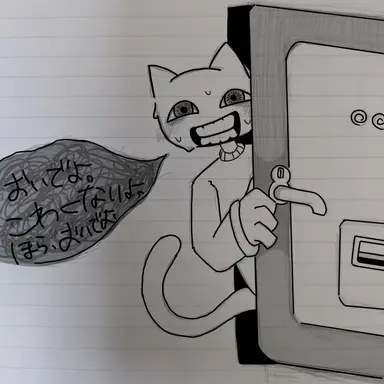 おいでよ。
こわくないよ。
ほら、おいでよ。